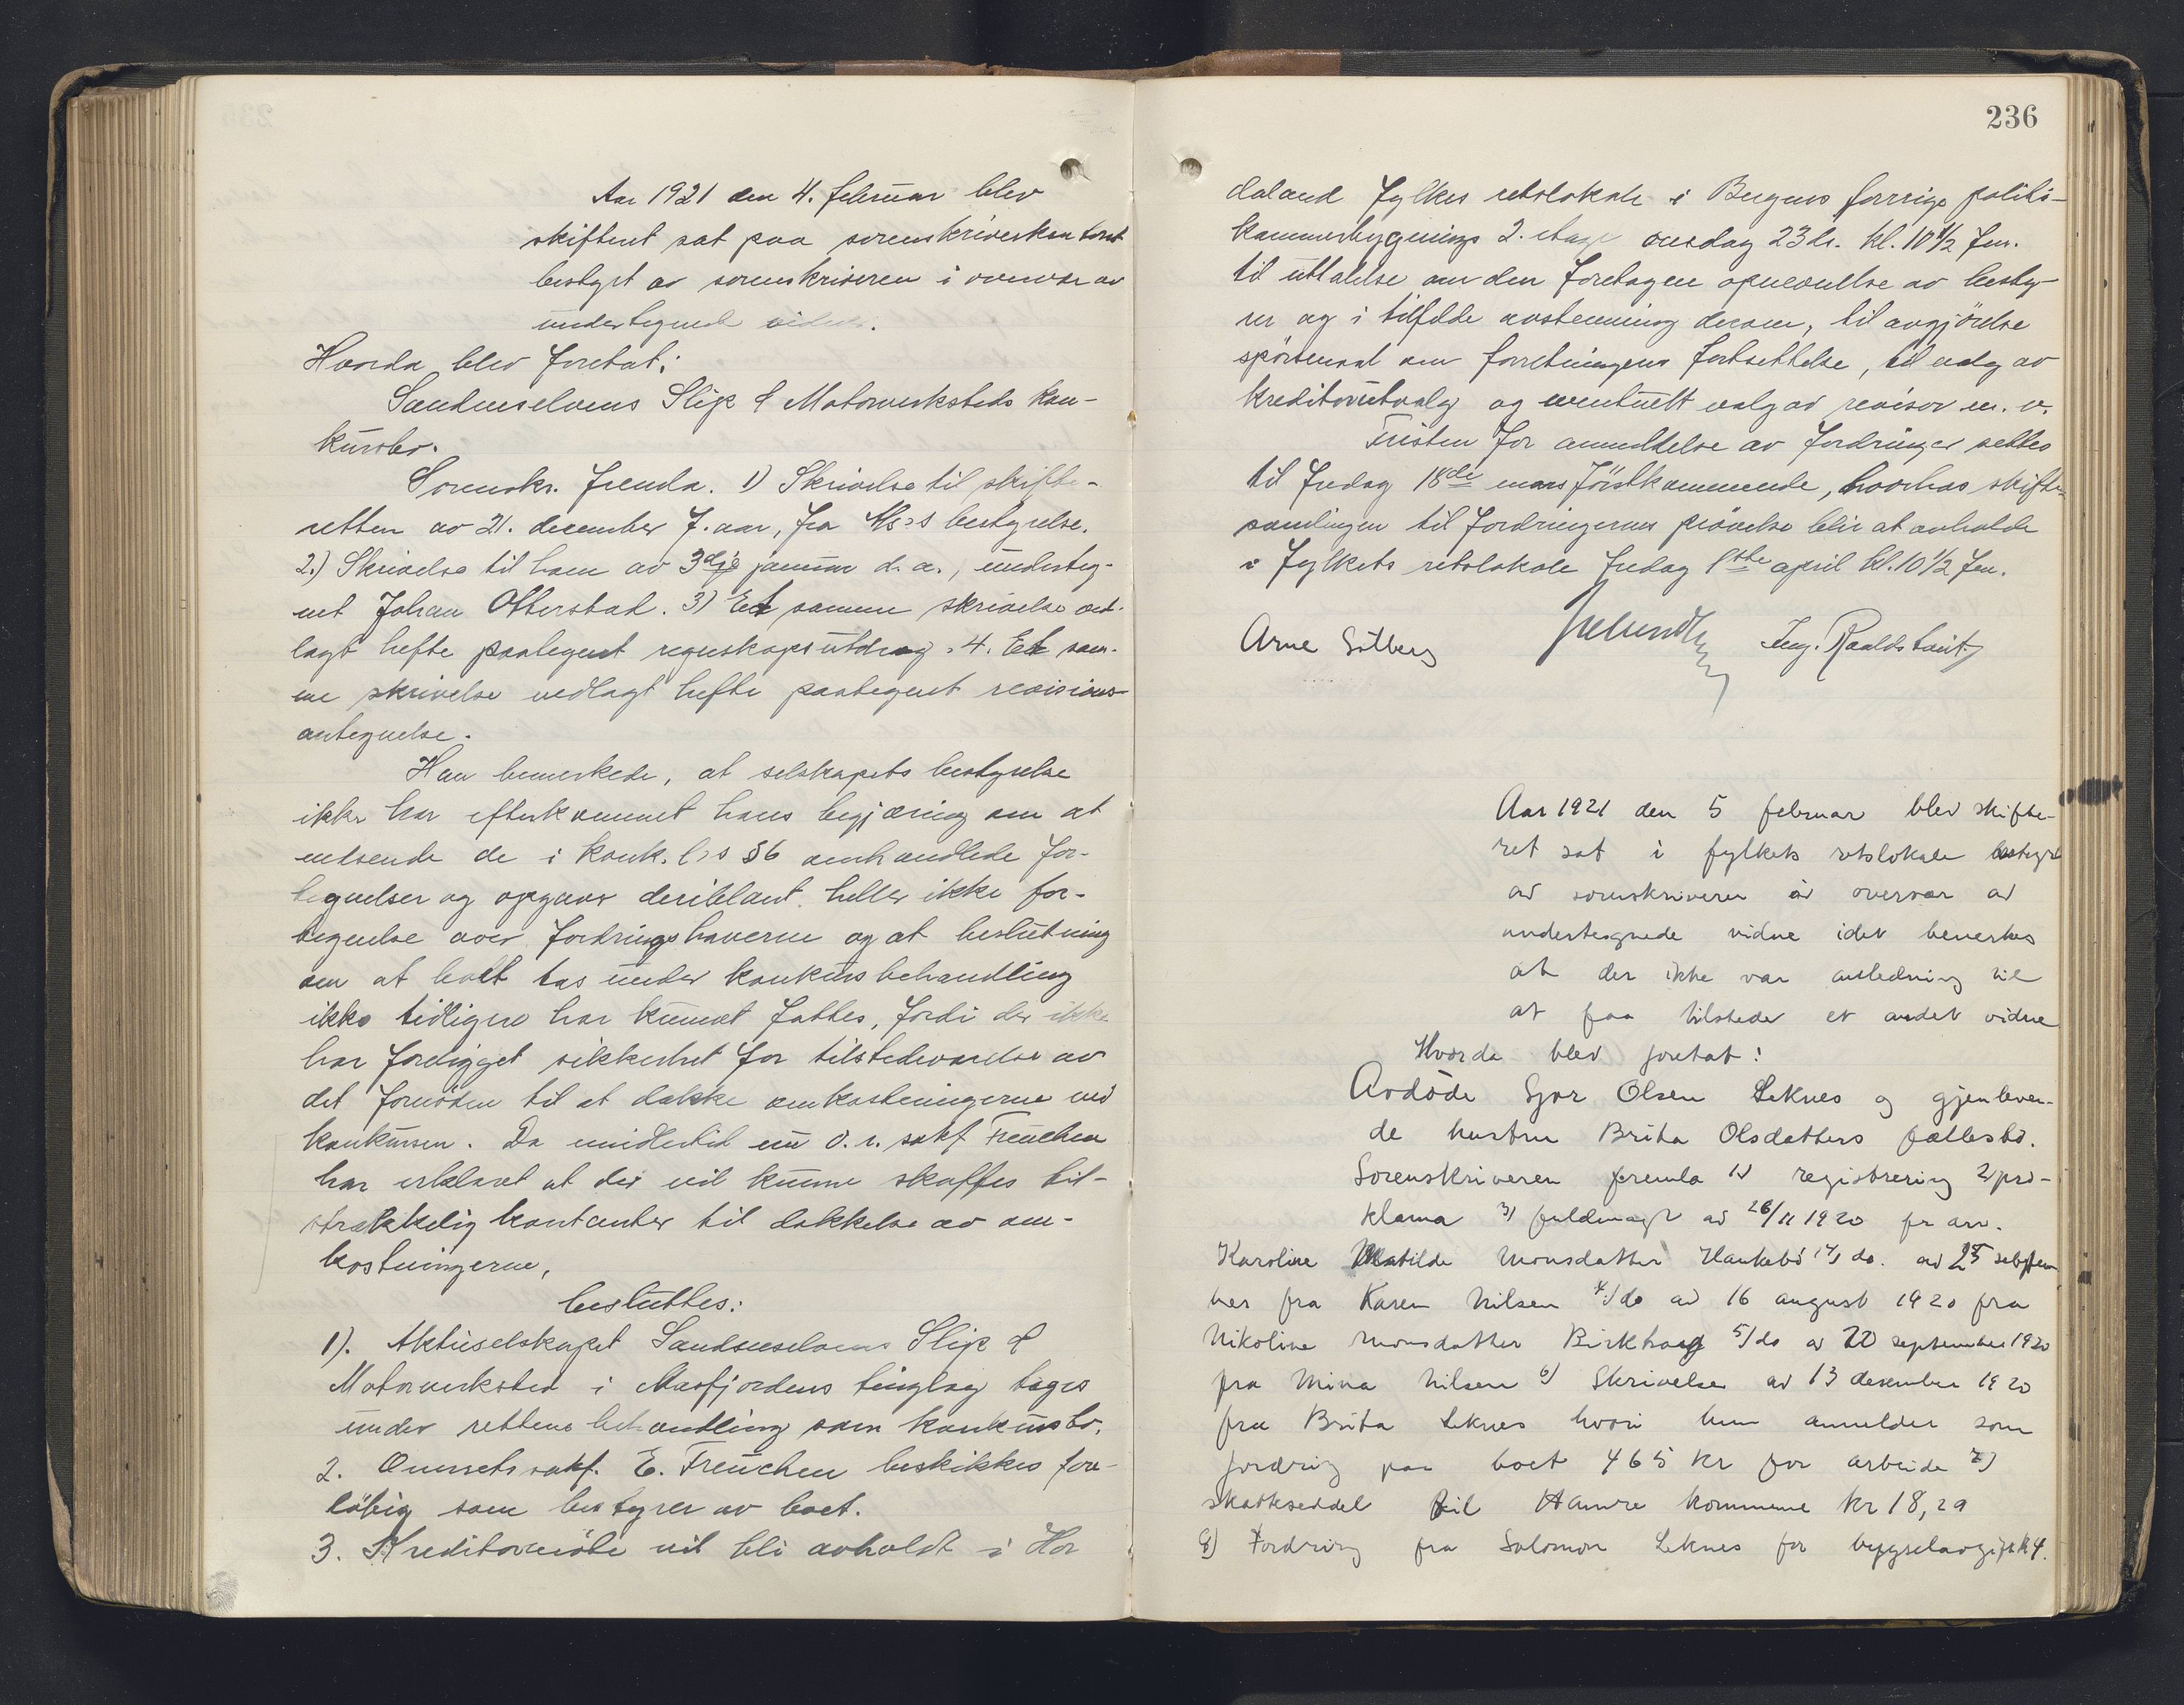 Aar 1921 den 4. februar blev
skifteret sat paa sorenskriverkontoret
bestyrt av sorenskriveren i overvær av
undertegnede vidner.
Hvorda blev foretat:
Sandneselvens Slip & Motorverksteds kon-
kursbo.
Sorenskr. fremla. 1) Skrivelse til skifte-
retten av 21. december f. aar, fra A/s:s bestyrelse.
2.) Skrivelse til ham av 3dje januar d. a., underteg-
net Johan Otterstad. 3) Et samme skrivelse ved-
lagt hefte paategnet regnskapsutdrag. 4. Et sam-
me skrivelse vedlagt hefte paategnet revisions-
antegnelse.
Han bemerkede, at selskapets bestyrelse
ikke har efterkommet hans begjæring om at
indsende de i konk. l:s §6 omhandlede for-
tegnelser og opgaver deriblant heller ikke for-
tegnelse over fordringshaverne og at beslutning
om at boet tas under konkursbehandling
ikke tidligere har kunnet fattes, fordi der ikke
har foreligget sikkerhet for tilstedeværelse av
det fornødne til at dække omkostningerne ved
konkursen. Da imidlertid nu o. r. sakf Freuchen
har erklæret at der vil kunne skaffes til-
strækkelig kontanter til dækkelse av om-
kostningerne,
besluttes:
1). Aktieselskapet Sandneselvens Slip &
Motorverksted i Masfjordens tinglag tages
under rettens behandling som konkursbo.
2. Overretssakf. E. Freuchen beskikkes fore-
løbig som bestyrer av boet.
3. Kreditormøte vil bli avholdt i Hor
236
daland fylkes retslokale i Bergens forrige politi-
kammerbygnings 2. etage onsdag 23 ds. kl. 10 1/2 fm.
til uttalelse om den foretagne opnevnelse av besty-
rer og i tilfælde avstemning derom, til avgjørelse
spørsmaal om forretningens fortsettelse, til valg av
kreditorutvalg og eventuelt valg av revisor m. v.
Fristen for anmeldelse av fordringer settes
til fredag 18de mars førstkommende, hvorhos skifte-
samlingen til fordringernes prøvelse blir at avholde
i fylkets retslokale fredag 1ste april kl. 10 1/2 fm.
Arne
Aar 1921 den 5 februar blev skifte-
ret sat i fylkets retslokale bestyrt
av sorenskriveren i overvær av
undertegnede vidne idet bemerkes
at der ikke var anledning til
at faa tilstede et andet vidne
Hvorda blev foretat:
Avdøde Sjor Olsen Leknes og gjenleven-
de hustru Brita Olsdatters fællesbo.
Sorenskriveren fremla 1) registrering 2) pro-
klama 3) fuldmagt av 26/11 1920 fr arv.
Karoline Matilde Monsdatter Haukebø do. av 25 septem
ber fra Karen Nilsen 4) do av 16 august 1920 fra
Nikoline Monsdatter Birkhaug 5) do av 22 september 1920
fra Mina Nilsen 6) Skrivelse av 13 desember 1920
fra Brita Leknes hvori hun anmelder som
fordring paa boet 465 kr for arbeide 7)
skatteseddel til Hamre kommune kr 18,29
8) Fordring fra Salomon Leknes for bygselavgift kr 4.